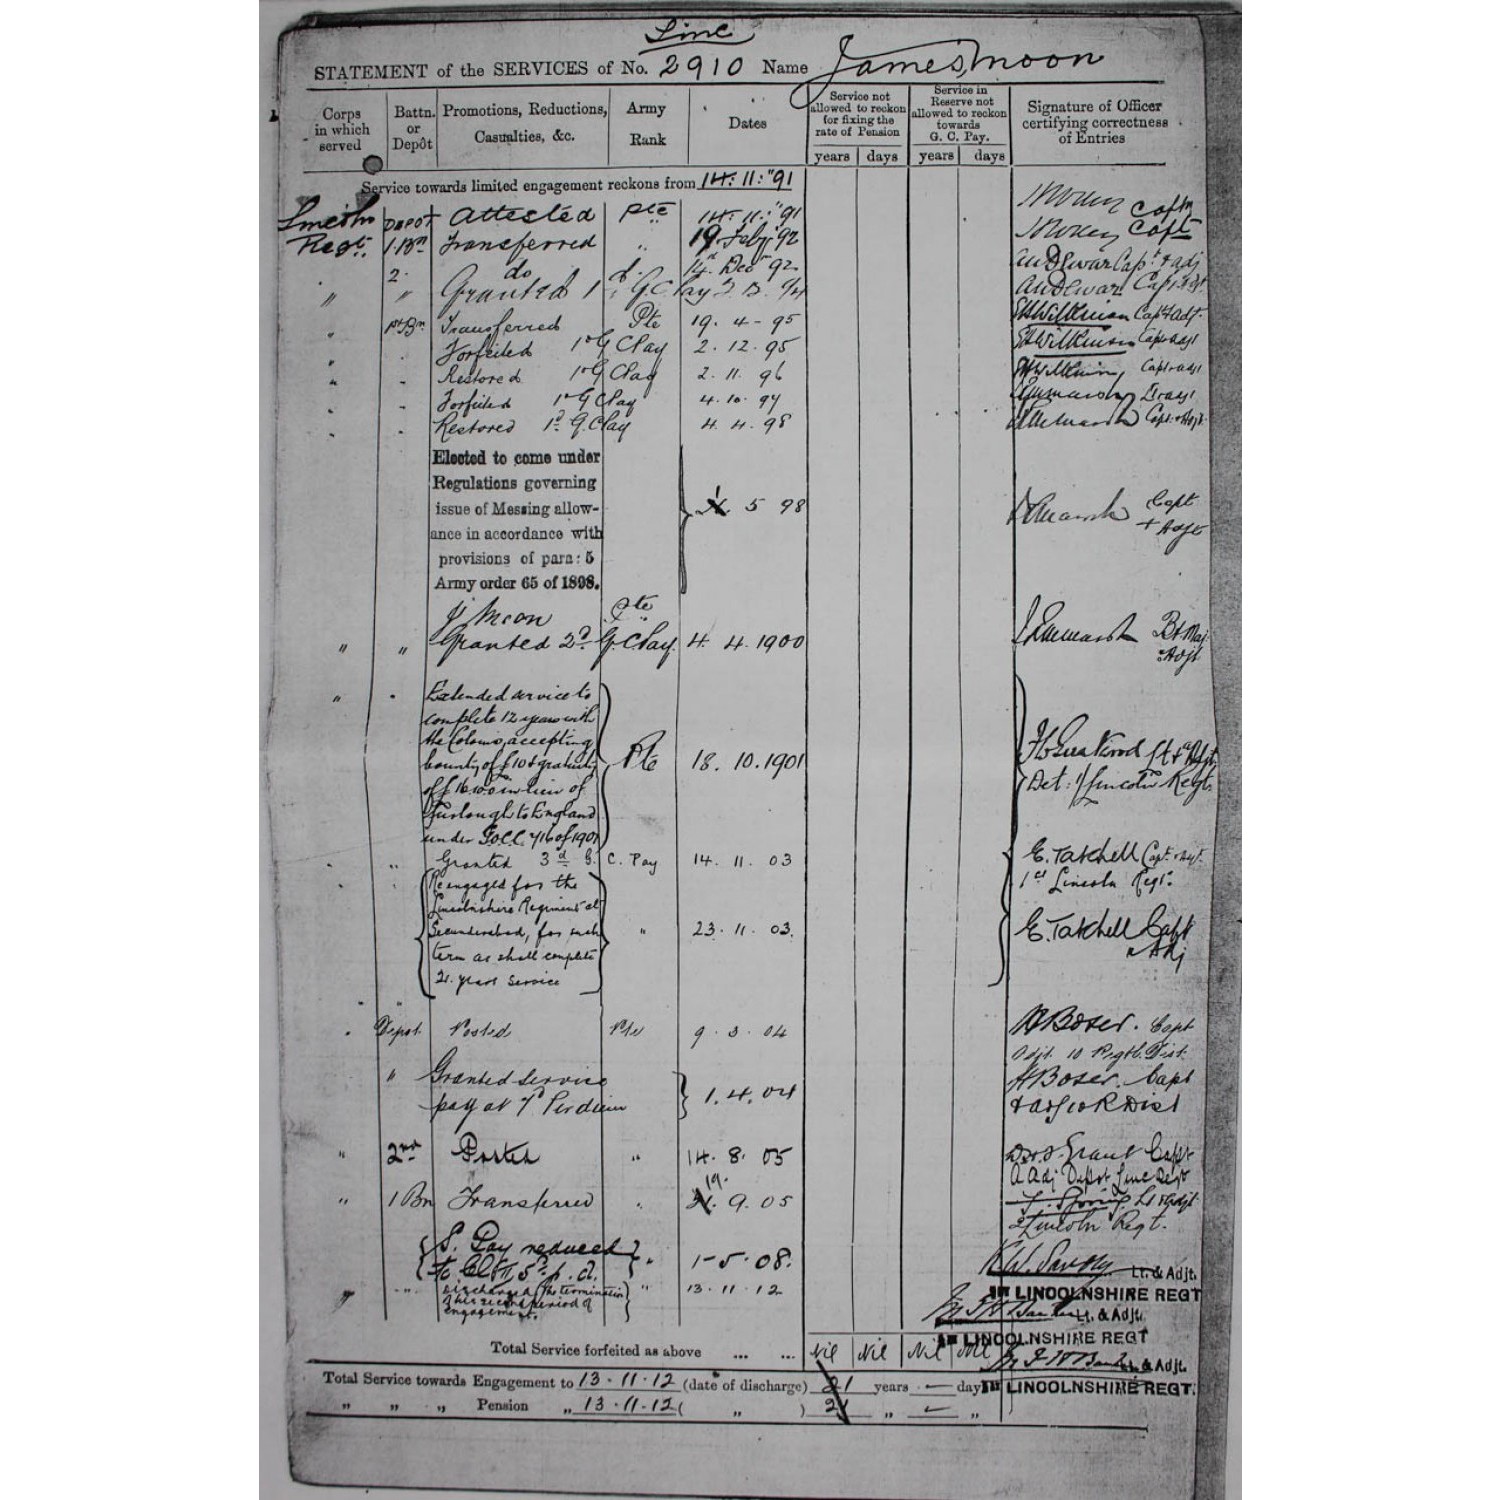 Linc
STATEMENT of the SERVICES of No. 2910 Name James Moon
Corps in which served
Battn. or Depôt
Promotions, Reductions, Casualties, &c.
Army Rank
Dates
Service not allowed to reckon for fixing the rate of Pension
years days
Service in Reserve not allowed to reckon towards G. C. Pay.
years days
Signature of Officer certifying correctness of Entries
Service towards limited engagement reckons from 14. 11: "91
Lincoln DEPOT Attested Pte 14. 11: "91 Captn
Regt. 1.Bn Transferred " 19 Feby 92 Capt
2 do 14. Dec 92 Capt & adj
" " Granted 1 G.C. Pay
" 1st Bn Transferred Pte 19. 4 - 95 Wilkinson Capt & adjt
Forfeited 1st G C Pay 2. 12. 95 Wilkinson Capt & adjt
" Restored 1st G C Pay 2. 11. 96 Capt & adjt
Forfeited 1st G C Pay 4. 10. 97
Restored 1st G. C Pay 4. 4. 98 Capt. & Adjt.
Elected to come under
Regulations governing
issue of Messing allow-
ance in accordance with
provisions of para: 5
Army order 65 of 1898.
1 5 98 Capt
+ Adjt
J Moon Pte
" " Granted 2d G. C. Pay. 4. 4. 1900 Bt Maj
Adjt
" Extended service to
complete 12 years with
the Colours, accepting
bounty of £10 & gratuity
of £16.10.0 in lieu of
furlough to England
under
Pte 18. 10. 1901
Det: 1/Lincoln Regt.
" Granted 3d G. C. Pay 14. 11. 03 E. Tatchell Capt. & Adjt.
1st Lincoln Regt.
Re engaged for the
Lincolnshire Regiment at
Secunderabad, for such
term as shall complete
21. years service
" 23. 11. 03. E. Tatchell Capt
& Adj
Depot Posted Pte 9. 3. 04 H Boser. Capt
Adjt. 10 Regtl. Dist.
" Granted Service H Boser. Capt
pay at 7d Per diem 1. 4. 04
" 2nd Posted " 14. 8. 05 Grant Capt
A Adj Depot Linc Regt
19.
" 1 Bn Transferred " 9. 05 Lt & Adjt
2 Lincoln Regt.
S. Pay reduced
to Cl II 5d p. d. " 1-5-08. Lt. & Adjt.
" " Discharged (the termination " 13. 11. 12 1st LINCOLNSHIRE REGT
of his second period of
engagement.
Lt. & Adjt.
1st LINCOLNSHIRE REGT
Total Service forfeited as above ... ... Nil Nil Nil Nil Lt. & Adjt.
Total Service towards Engagement to 13.11.12 (date of discharge) 21 years — days 1st LINCOLNSHIRE REGT.
" " " Pension " 13.11.12 ( " ) 21 " — "